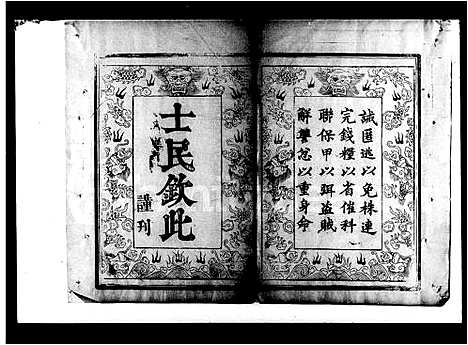 誡匿逃以免株連
完錢糧以省催科
聯保甲以弭盗賊
解讐忿以重身命
士民欽此
謹刊